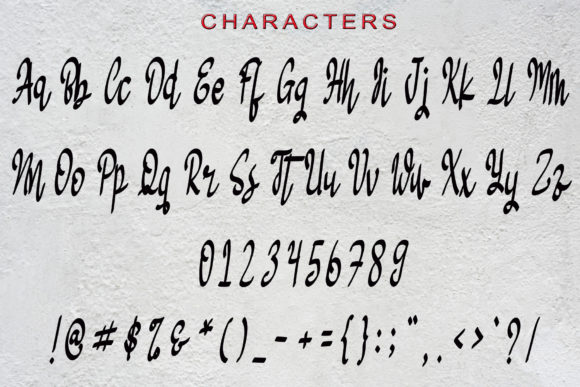 CHARACTERS
Aa Bb Cc Dd Ee Ff Gg Hh Ii Jj Kk Ll Mm
Nn Oo Pp Qq Rr Ss Tt Uu Vv Ww Xx Yy Zz
0123456789
!@#$%&*()_-+={}:;",.<>'?/